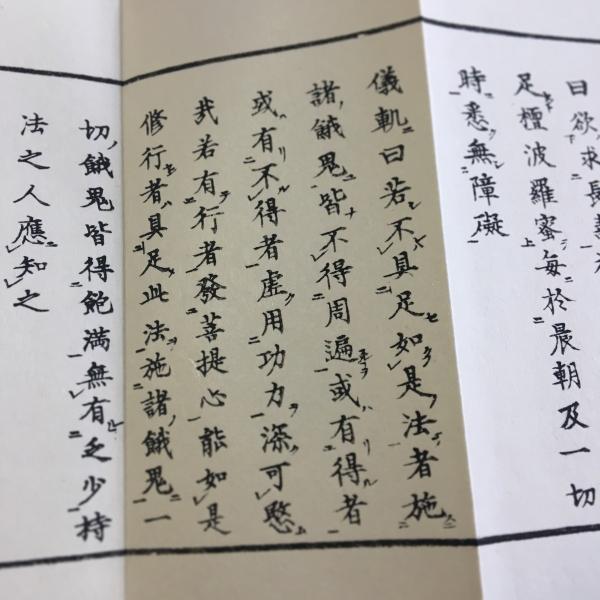 曰欲求長壽
足檀波羅蜜每於晨朝及一切
時悉無障礙
儀軌曰若不具足如是法者施
諸餓鬼皆不得周遍或有得者
或有不得者虛用功力深可愍
哉若有行者發菩提心能如是
修行者具足此法施諸餓鬼一
切餓鬼皆得飽滿無有乏少持
法之人應知之